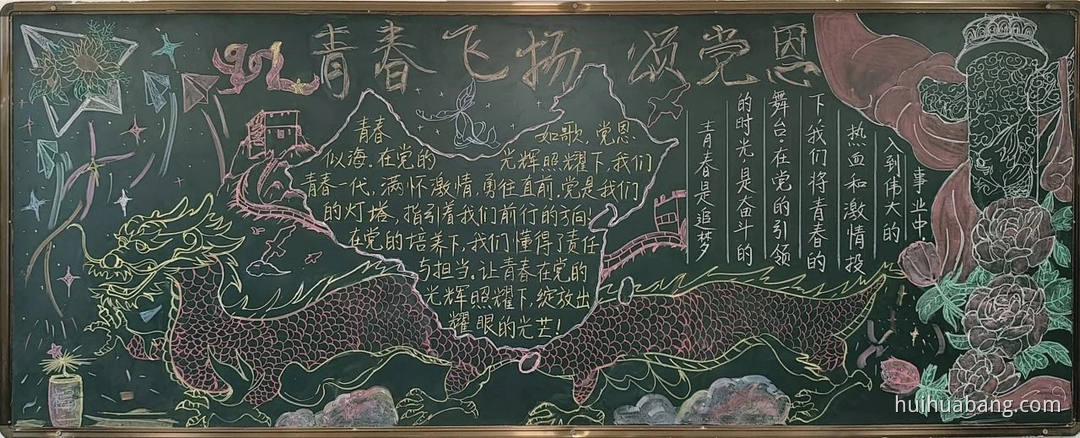 青春飞扬 颂党恩
青春 如歌,党恩
似海.在党的 光辉照耀下,我们
青春一代,满怀激情,勇往直前.党是我们
的灯塔,指引着我们前行的方向.
在党的培养下,我们懂得了责任
与担当.让青春在党的
光辉照耀下,绽放出
耀眼的光芒!
青春是追梦
的时光是奋斗的
舞台。在党的引领
下,我们将青春的
热血和激情投
入到伟大的
事业中
huihuabang.com